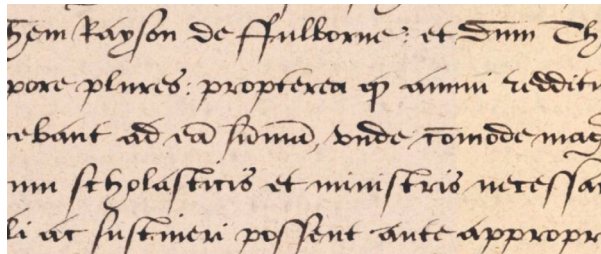 hem Rayson de ffulborne: et dnm Th
pore plures: propterea qp annui redditu
cebant ad eā sūmā, vnde cōmode mag
num scholasticis et ministris necessa
li ac sustineri possent ante appropr